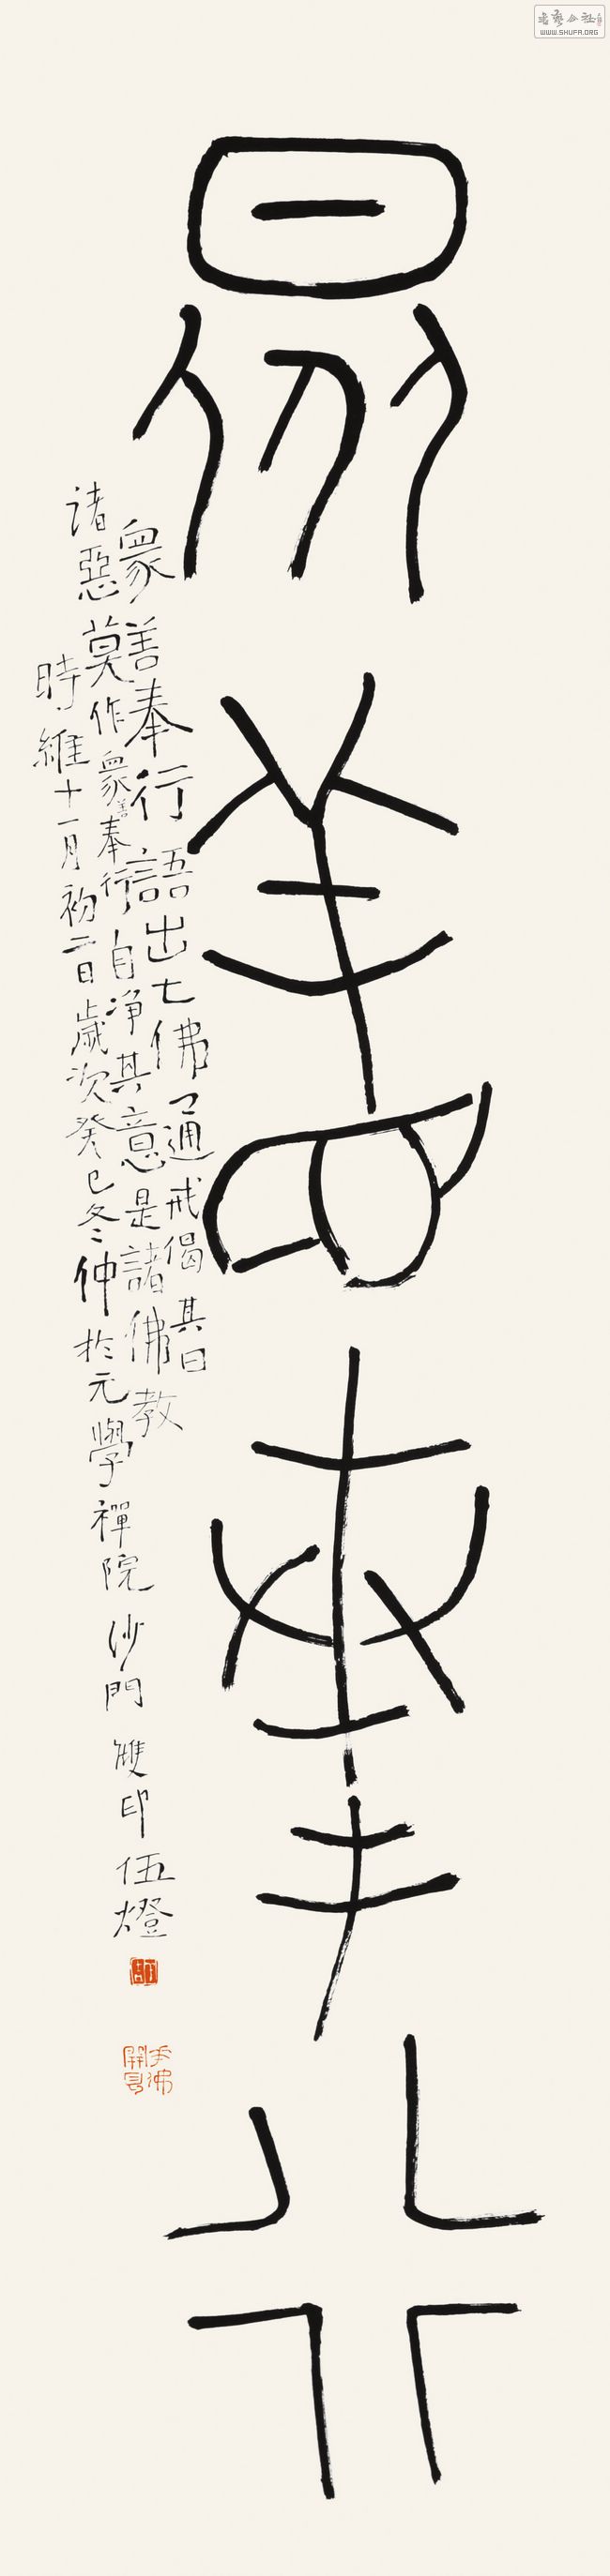 眾善奉行
眾善奉行語出七佛通戒偈其曰
諸惡莫作眾善奉行自净其意是諸佛教
時維十一月初二日歲次癸巳冬仲於元學禪院沙門雙印伍燈
WWW.SHUFA.ORG